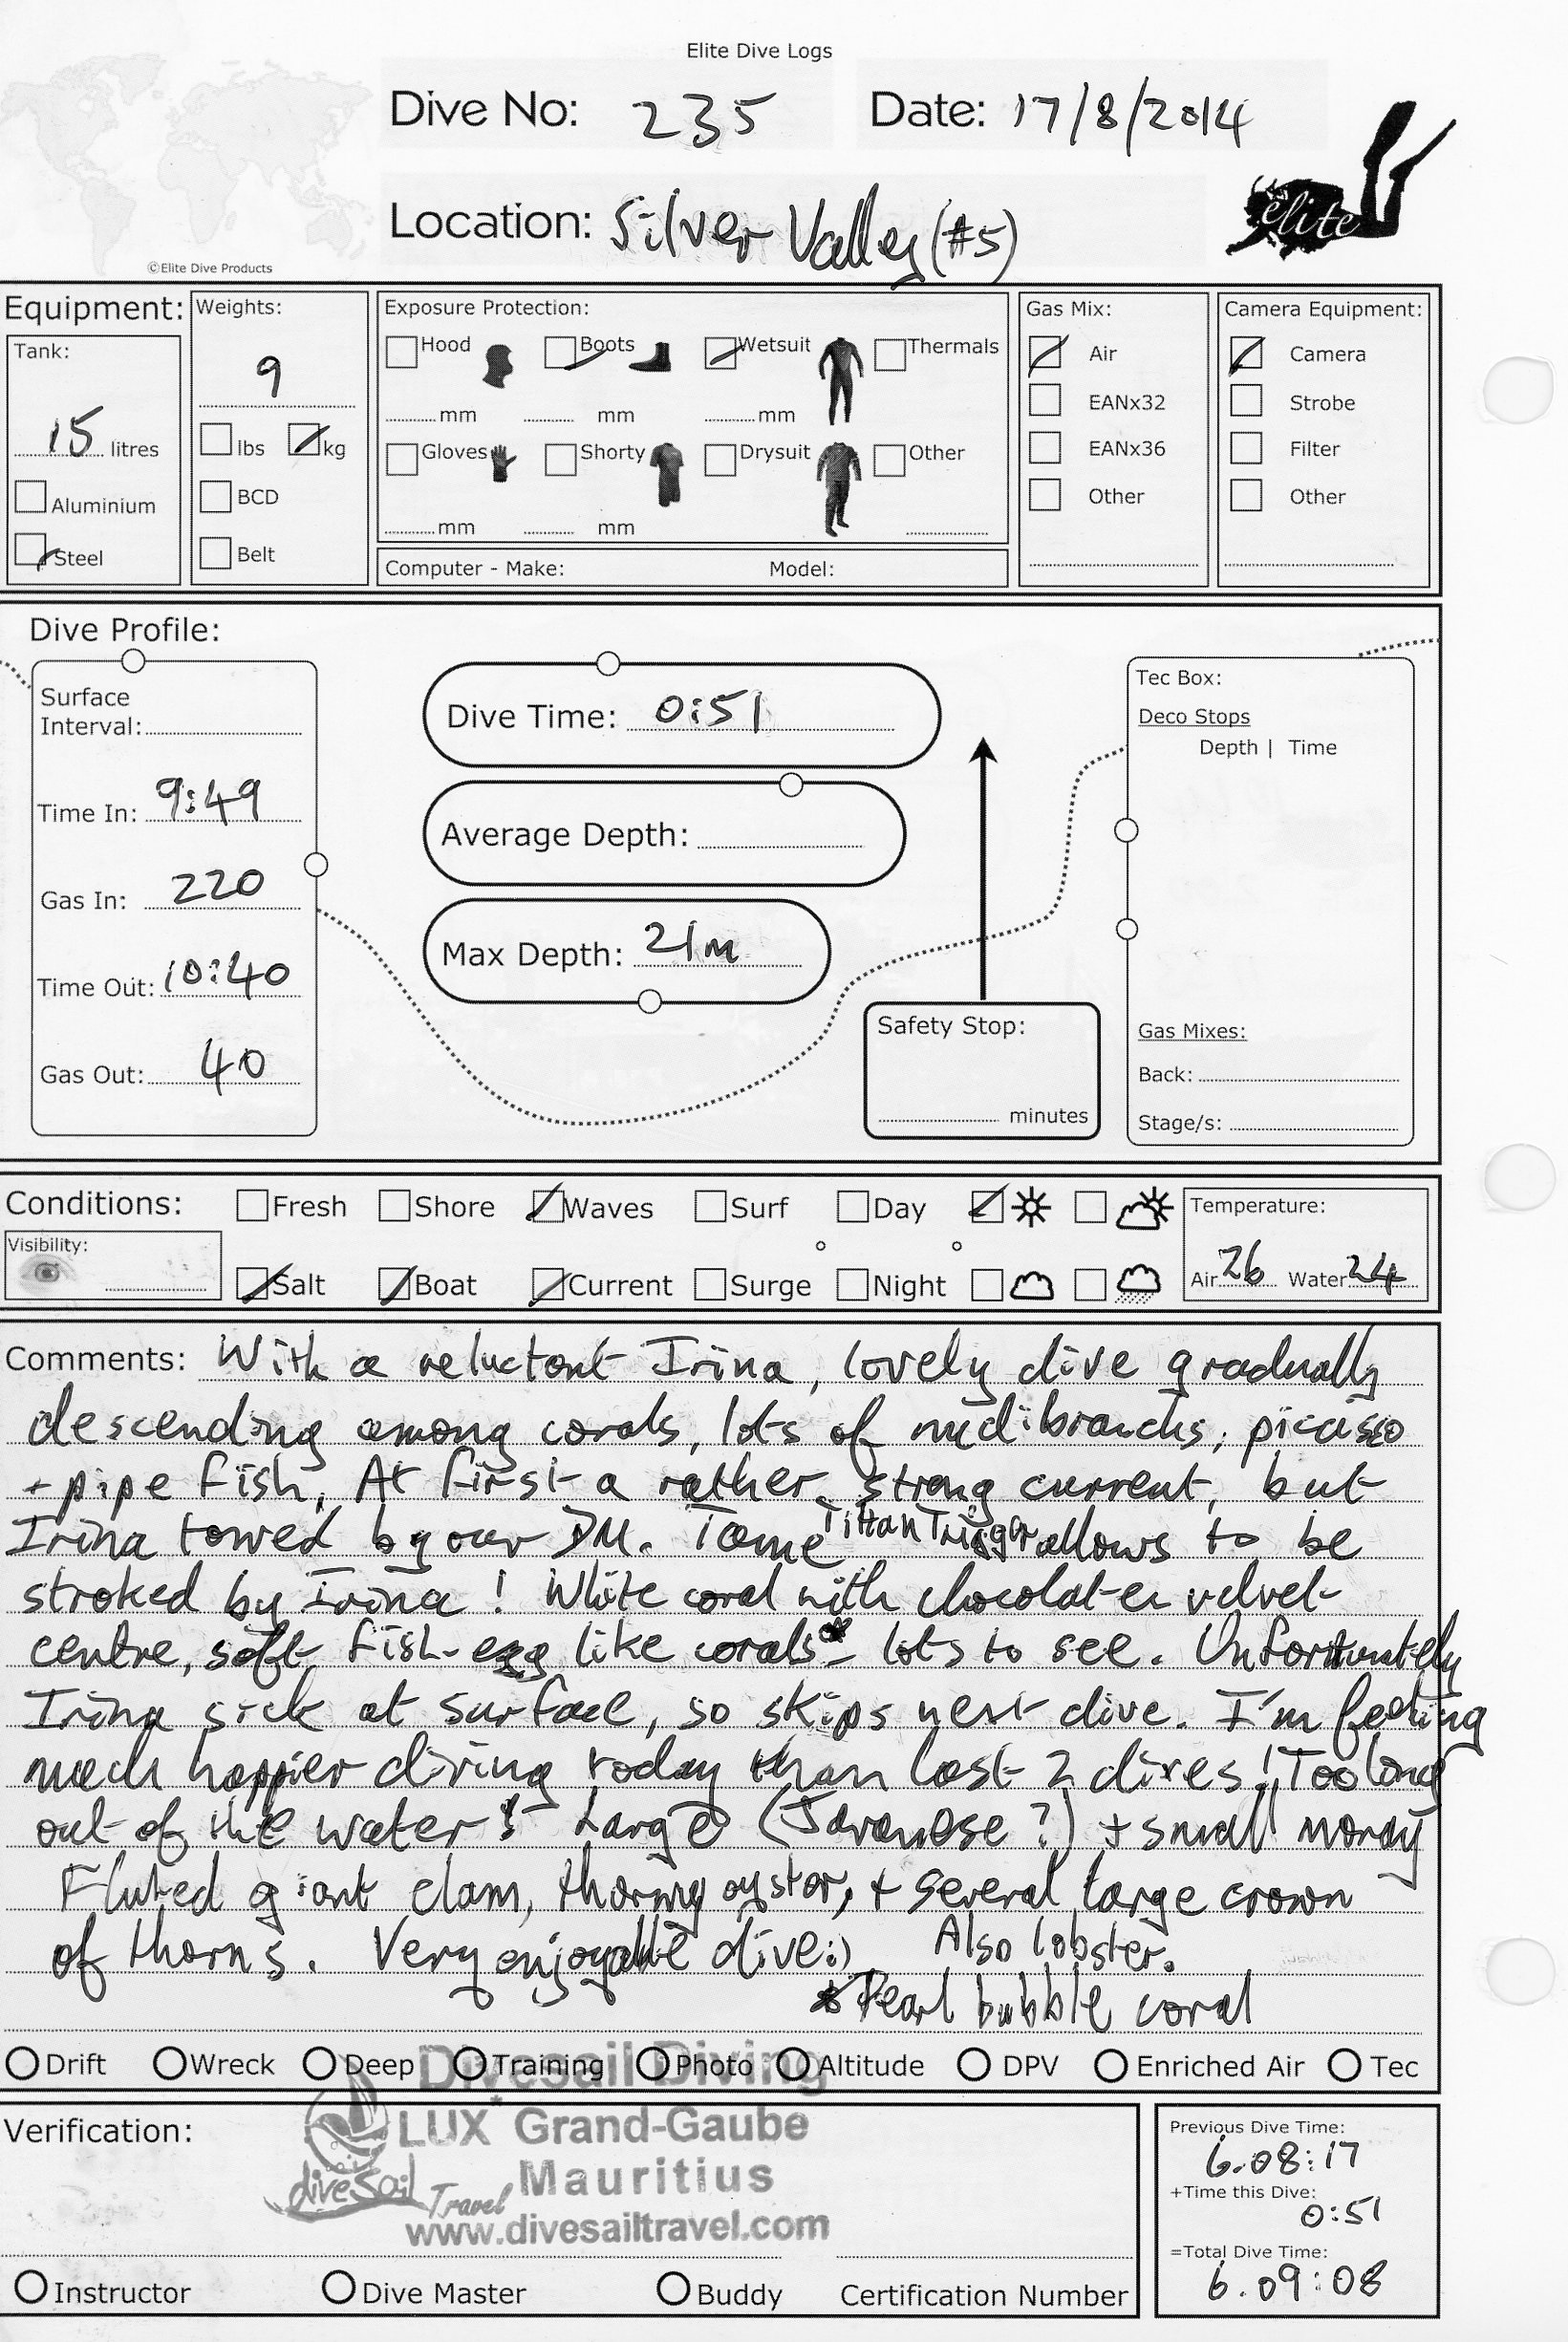 Elite Dive Logs
Dive No: 235 Date: 17/8/2014
Location: Silver Valley (#5)
elite
©Elite Dive Products
Equipment:
Tank:
15 litres
Aluminium
Steel
Weights:
9
lbs kg
BCD
Belt
Exposure Protection:
Hood Boots Wetsuit Thermals
mm mm mm
Gloves Shorty Drysuit Other
mm mm
Computer - Make: Model:
Gas Mix:
Air
EANx32
EANx36
Other
Camera Equipment:
Camera
Strobe
Filter
Other
Dive Profile:
Surface
Interval:
Time In: 9:49
Gas In: 220
Time Out: 10:40
Gas Out: 40
Dive Time: 0:51
Average Depth:
Max Depth: 21m
Safety Stop:
minutes
Tec Box:
Deco Stops
Depth | Time
Gas Mixes:
Back:
Stage/s:
Conditions: Fresh Shore Waves Surf Day
Visibility:
Salt Boat Current Surge Night
Temperature:
Air 26 Water 24
Comments: With a reluctant Irina, lovely dive gradually
descending among corals, lots of nudibranchs, picasso
+ pipe fish. At first a rather strong current, but
Irina towed by our DM. Tame Tittan Trigger allows to be
stroked by Irina! White coral with chocolate velvet
centre, soft fish-egg like corals* - lots to see. Unfortunately
Irina sick at surface, so skips next dive. I'm feeling
much happier diving today than last 2 dives! Too long
out of the water! Large (Javanese?) + small moray
Fluted giant clam, thorny oyster, + several large crown
of thorns. Very enjoyable dive:) Also lobster.
*Pearl bubble coral
Drift Wreck Deep Training Photo Altitude DPV Enriched Air Tec
Verification:
Divesail Diving
LUX* Grand-Gaube
Mauritius
diveSail Travel
www.divesailtravel.com
Instructor Dive Master Buddy Certification Number
Previous Dive Time:
6.08:17
+Time this Dive:
0:51
=Total Dive Time:
6.09:08